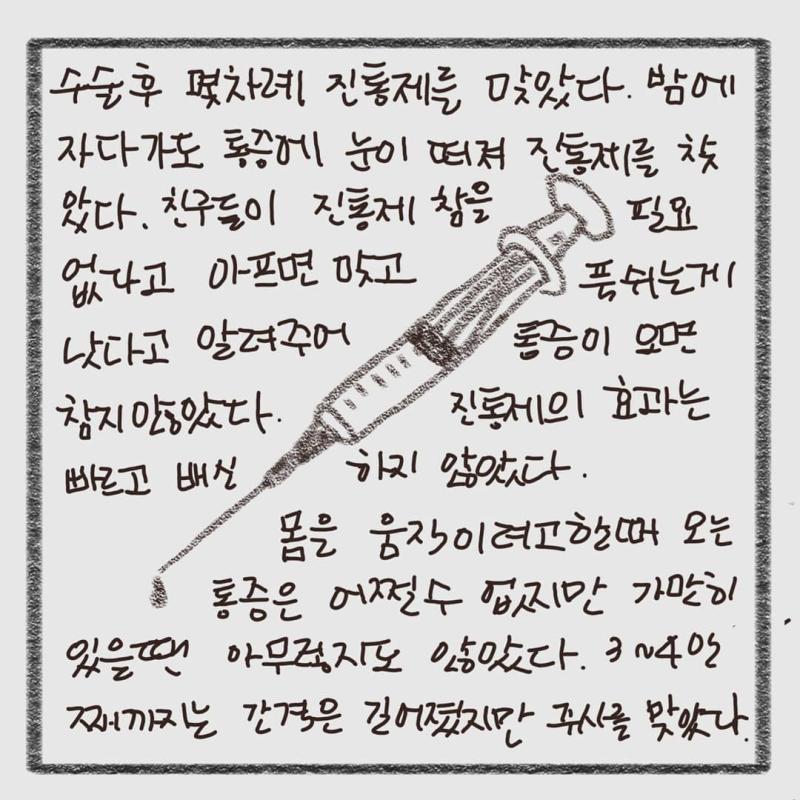 수술후 몇차례 진통제를 맞았다. 밤에
자다가도 통증에 눈이 떠져 진통제를 찾
았다. 친구들이 진통제 참을 필요
없다고 아프면 맞고 푹쉬는게
낫다고 알려주어 통증이 오면
참지않았다. 진통제의 효과는
빠르고 배신 하지 않았다.
몸을 움직이려고할때 오는
통증은 어쩔수 없지만 가만히
있을땐 아무렇지도 않았다. 3~4일
째까지는 간격은 길어졌지만 주사를 맞았다.